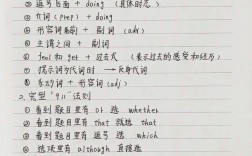 ③ 逗号后面 + doing (具体时态)
④ 介词 (prep) + doing
⑤ 形容词前 + 副词 (adv)
⑥ 主谓之间 + 副词
⑦ feel和get + 过去式 (表示过去的感受和经历)
⑧ 提示词多代词时 → 反身代词
⑨ 名词 + 形容词 (adj)
2. 完型"411"法则
① 看到题目里有 or 选 whether
② 看到题目里有 that 就选 that
③ 看到题目里有 逗号 选 which
④ 选项里有 although 直接选